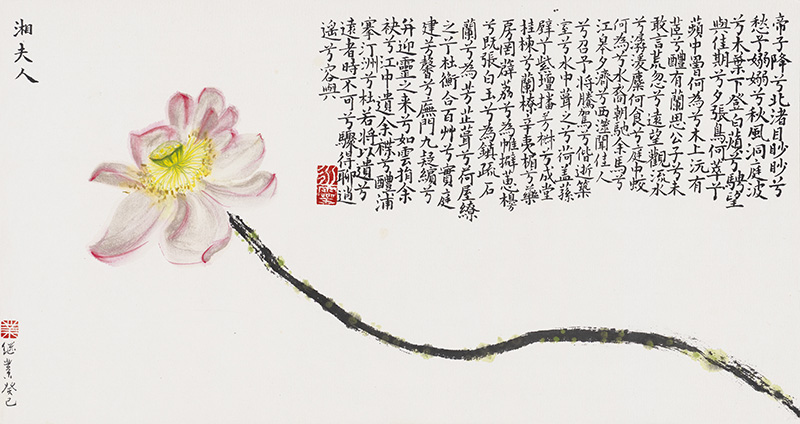 帝子降兮北渚目眇眇兮
愁予嫋嫋兮秋風洞庭波
兮木葉下登白薠兮騁望
與佳期兮夕張鳥何萃兮
蘋中罾何為兮木上沅有
茝兮醴有蘭思公子兮未
敢言荒忽兮遠望觀流水
兮潺湲麋何食兮庭中蛟
何為兮水裔朝馳余馬兮
江皋夕濟兮西澨聞佳人
兮召予將騰駕兮偕逝築
室兮水中葺之兮荷蓋蓀
壁兮紫壇播芳椒兮成堂
桂棟兮蘭橑辛夷楣兮藥
房罔薜荔兮為帷擗蕙櫋
兮既張白玉兮為鎮疏石
蘭兮為芳芷葺兮荷屋繚
之兮杜衡合百艸兮實庭
建芳馨兮廡門九嶷繽兮
并迎靈之來兮如雲捐余
袂兮江中遺余褋兮醴浦
搴汀洲兮杜若將以遺兮
遠者時不可兮驟得聊逍
遙兮容與
湘夫人
業
继業癸巳